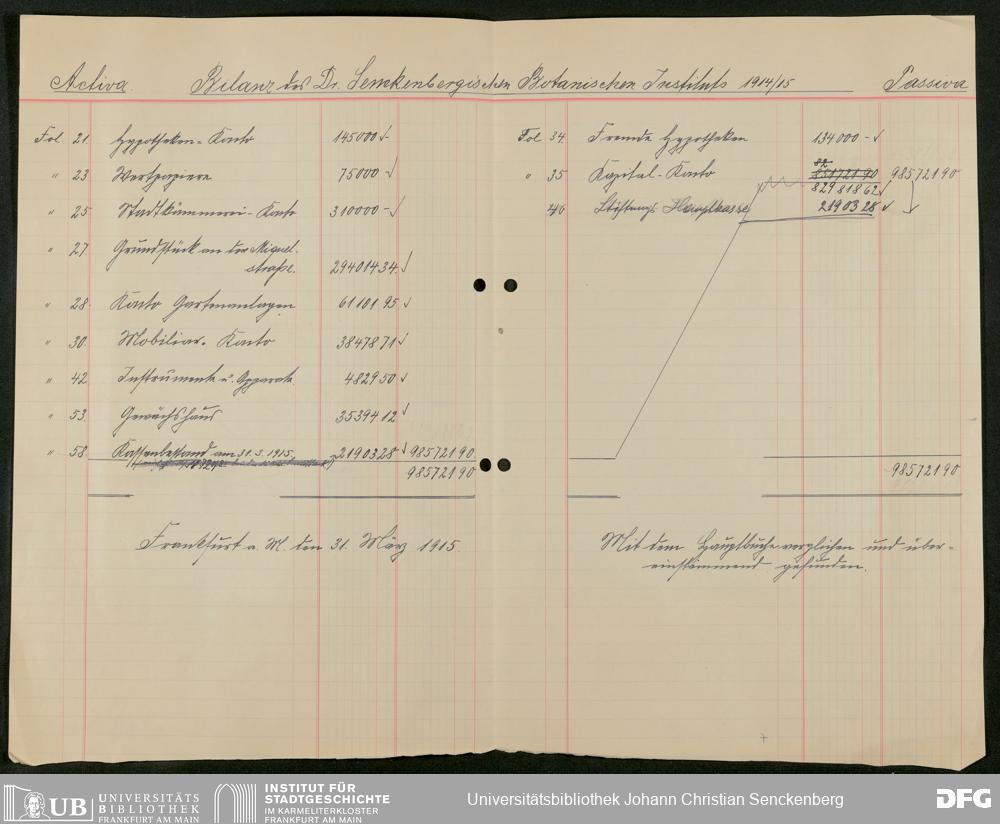 Activa. Bilanz des Dr. Senckenbergischen Botanischen Instituts 1914/15 Passiva
Fol. 21. Hypotheken-Konto 145000 -
" 23 Wertpapiere 75000 -
" 25 Stadtkämmerei-Konto 310000 -
" 27. Grundstück an der Miquel-
strasse. 294014 34
" 28. Konto Gartenanlagen 61101 95
" 30. Mobiliar-Konto 38478 71
" 42 Instrumente u. Apparate 4829 50
" 53. Gewächshaus 35394 12
" 58. Kassenbestand am 31.3.1915. 21903 28 985721 90
985721 90
Frankfurt a. M. den 31. März 1915.
Fol 34. Fremde Hypotheken 134000 -
" 35 Kapital-Konto 851721 90 985721 90
829818 62
46 Stiftungs Hauptkasse 21903 28
985721 90
Mit dem Hauptbuche verglichen und über-
einstimmend gefunden.
UB UNIVERSITÄTS
BIBLIOTHEK
FRANKFURT AM MAIN
INSTITUT FÜR
STADTGESCHICHTE
IM KARMELITERKLOSTER
FRANKFURT AM MAIN
Universitätsbibliothek Johann Christian Senckenberg
DFG